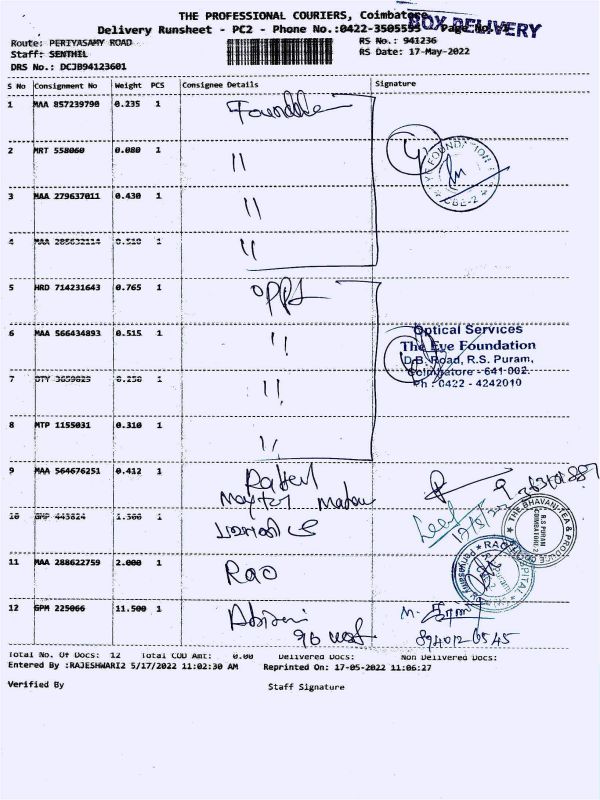 THE PROFESSIONAL COURIERS, Coimbatore
BOX DELIVERY
Delivery Runsheet - PC2 - Phone No.:0422-3505595 Page No.
Route: PERIYASAMY ROAD
RS No.: 941236
Staff: SENTHIL
RS Date: 17-May-2022
DRS No.: DCJB94123601
S No Consignment No Weight PCS Consignee Details Signature
1 MAA 857239790 0.235 1
2 MRT 558060 0.080 1 "
3 MAA 279637011 0.430 1 "
4 MAA 285632114 0.510 1 "
5 HRD 714231643 0.765 1
6 MAA 566434893 0.515 1 "
Optical Services
The Eye Foundation
D.B. Road, R.S. Puram,
Coimbatore - 641 002.
Ph : 0422 - 4242010
7 DTY 3659825 0.250 1 "
8 MTP 1155031 0.310 1 "
9 MAA 564676251 0.412 1
10 GMP 443824 1.300 1
THE BHAVANI TEA & PRODUCE
R.S PURAM
COIMBATORE-2
11 MAA 288622759 2.000 1 Rao
RAO HOSPITAL
12 GPM 225066 11.500 1
Total No. Of Docs: 12 Total COD Amt: 0.00 Delivered Docs: Non Delivered Docs:
Entered By :RAJESHWARI2 5/17/2022 11:02:30 AM Reprinted On: 17-05-2022 11:06:27
Verified By Staff Signature